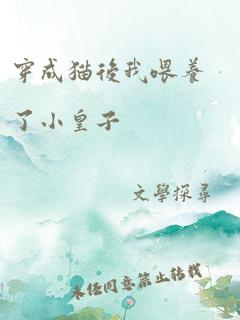 穿成猫後我喂养
了小皇子
文學探尋
未經同意禁止轉載